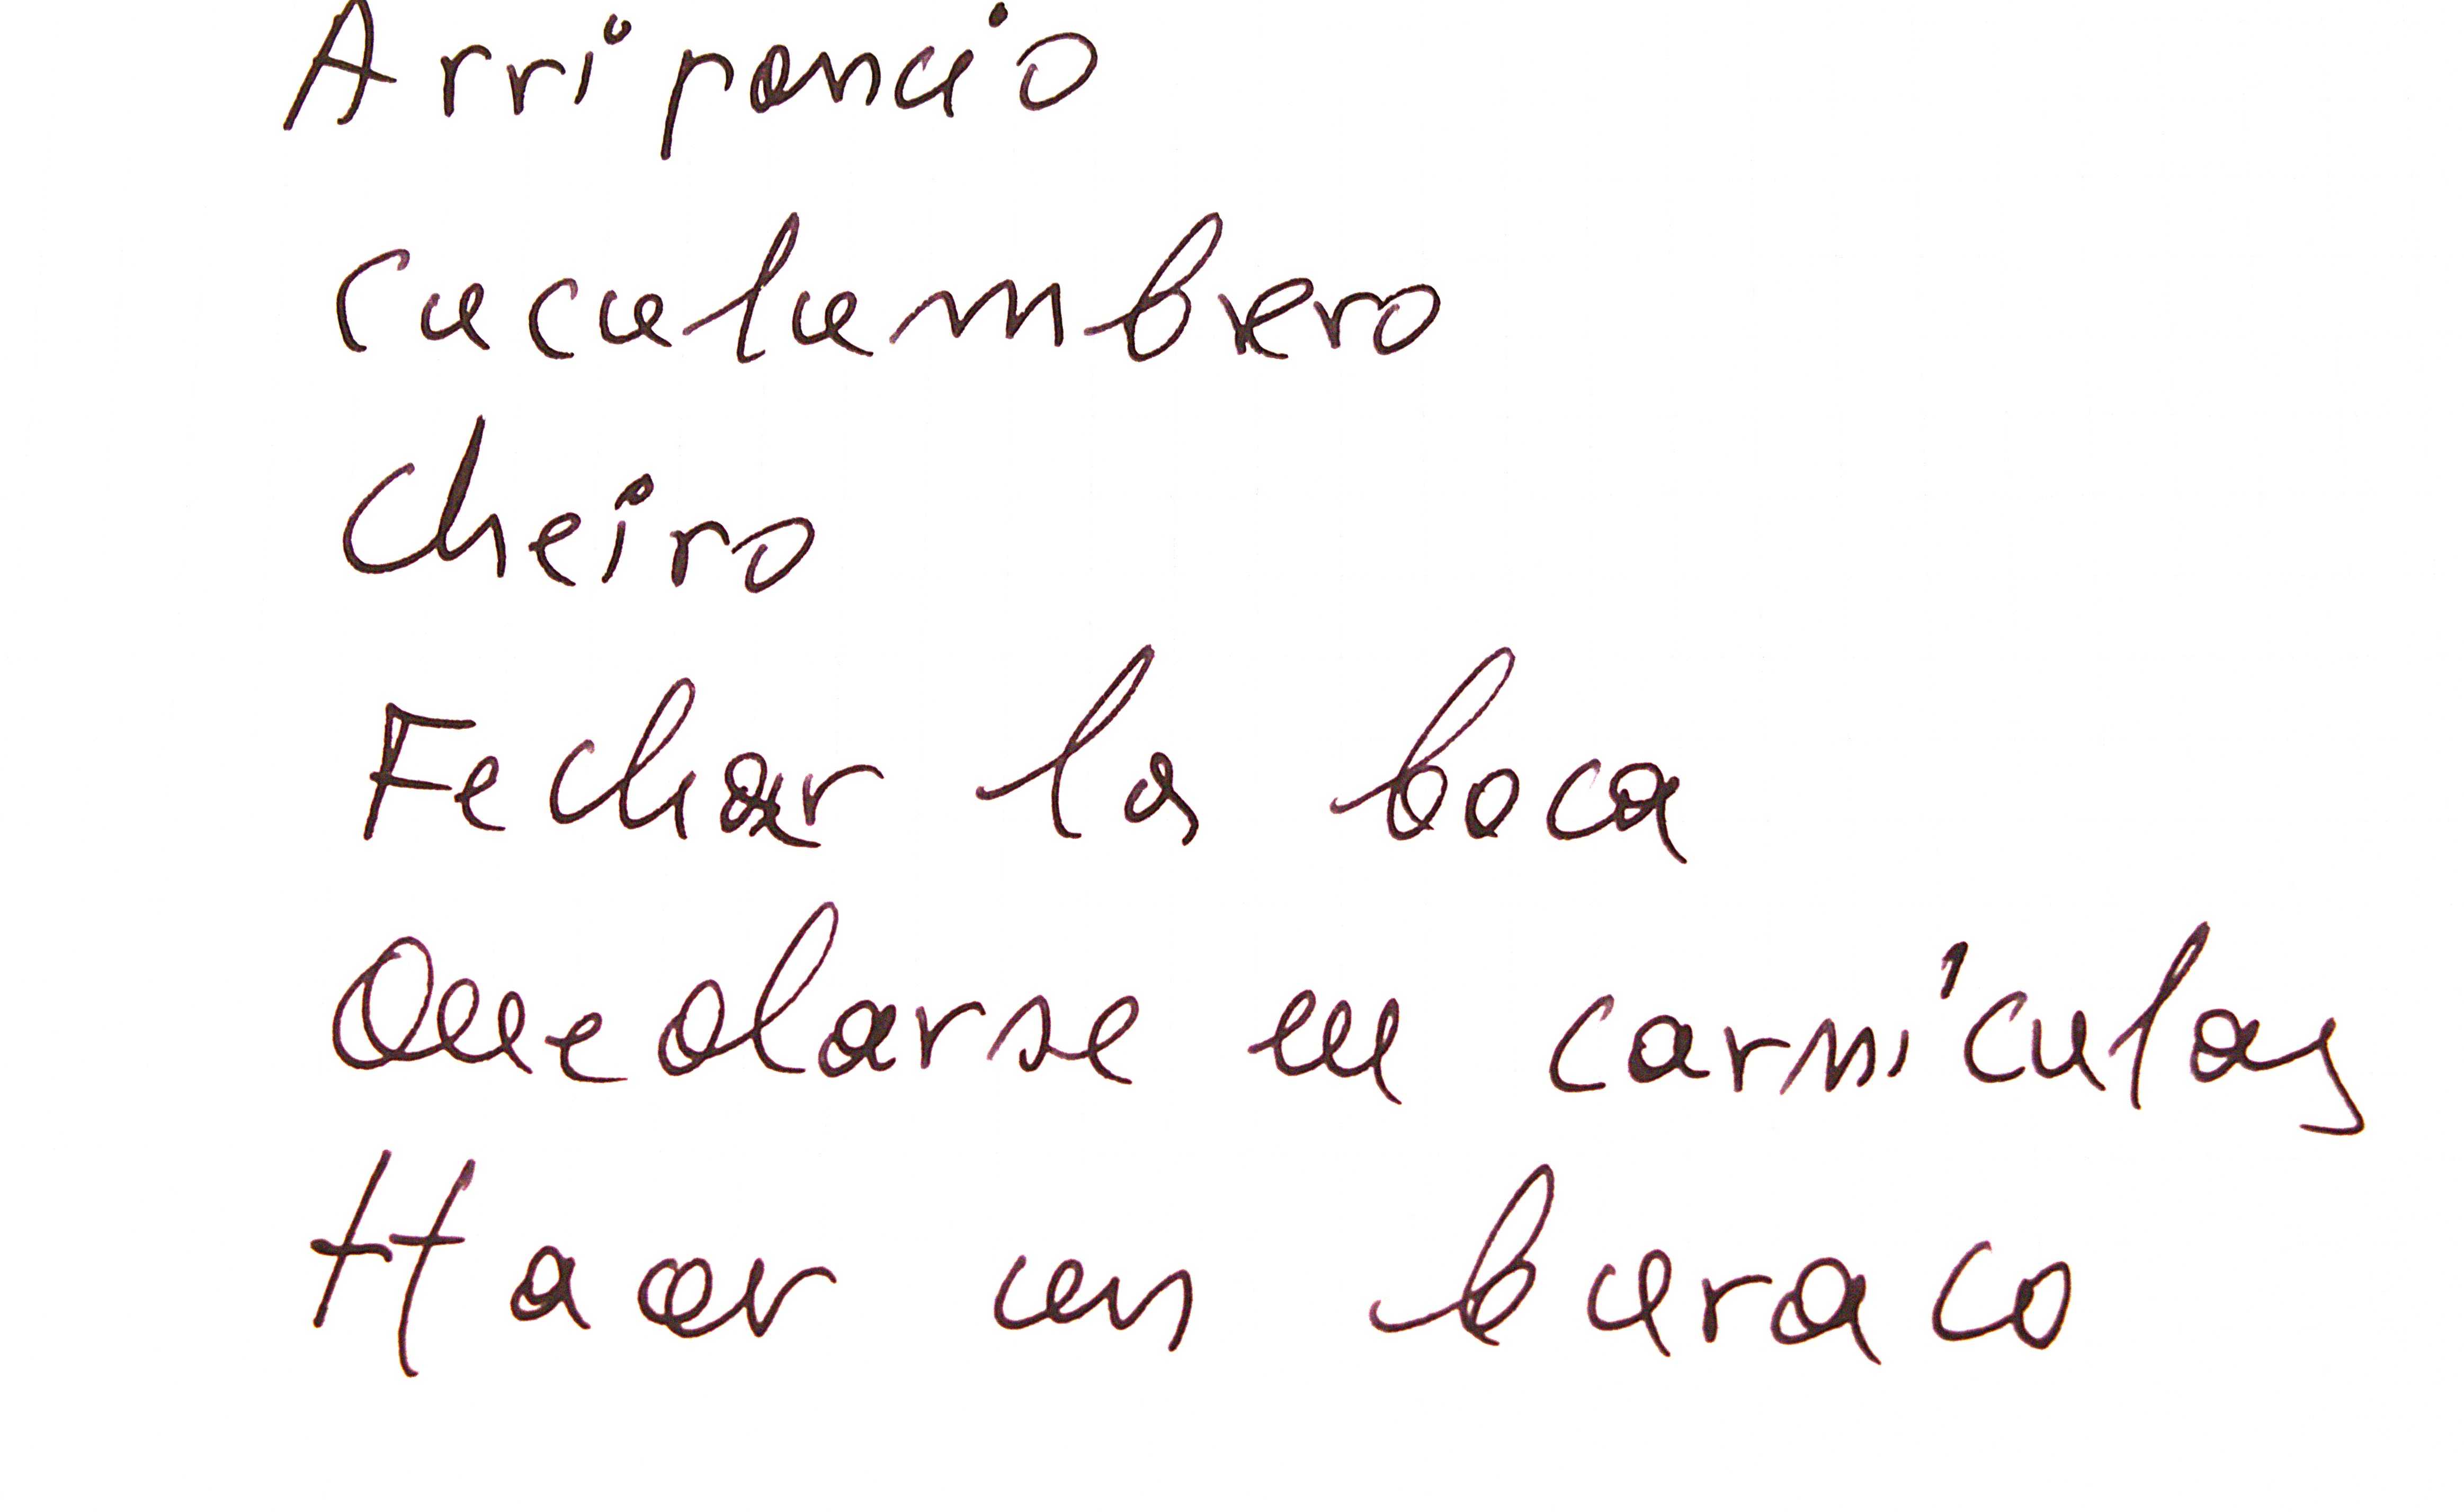 Arripancio
Cuculumbrero
Cheiro
Fechar la boca
Quedarse en carnículas
Hacer un buraco